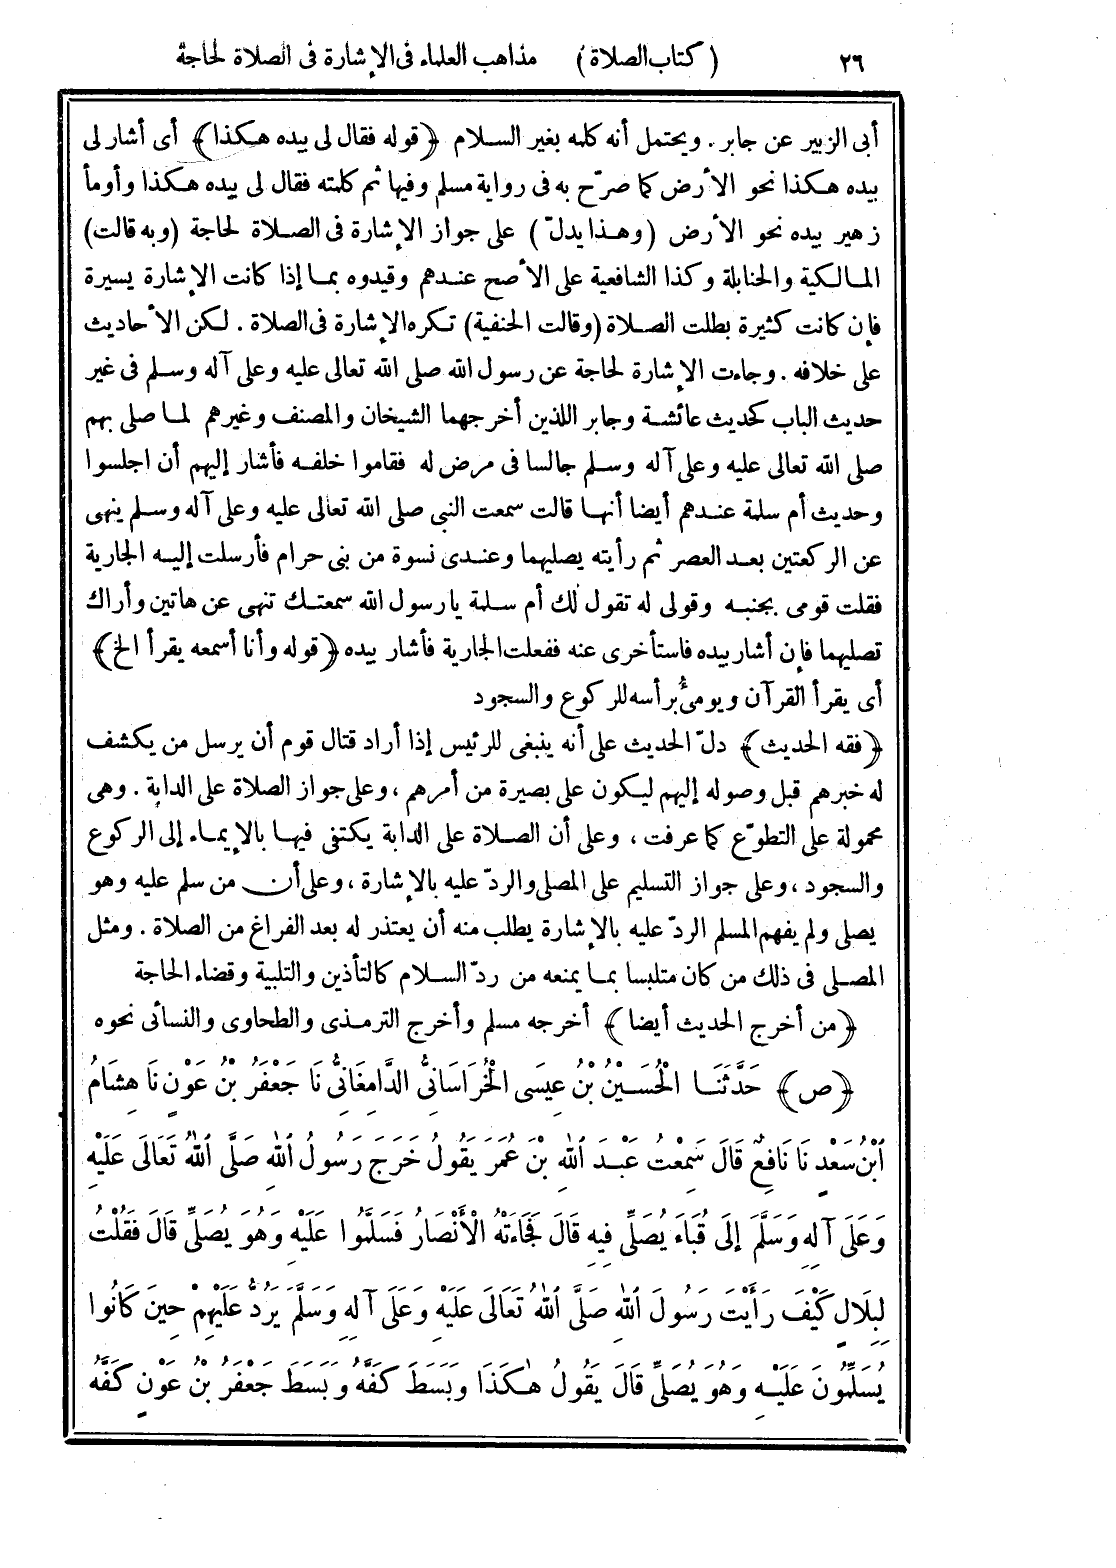 ٢٦ (كتاب الصلاة) مذاهب العلماء فى الإشارة فى الصلاة لحاجة
أبى الزبير عن جابر. ويحتمل أنه كلمه بغير السلام ﴿قوله فقال لى بيده هكذا﴾ أى أشار لى
بيده هكذا نحو الأرض كما صرّح به فى رواية مسلم وفيها ثم كلمته فقال لى بيده هكذا وأومأ
زهير بيده نحو الأرض (وهذا يدلّ) على جواز الإشارة فى الصلاة لحاجة (وبه قالت)
المالكية والحنابلة وكذا الشافعية على الأصح عندهم وقيدوه بما إذا كانت الإشارة يسيرة
فإن كانت كثيرة بطلت الصلاة (وقالت الحنفية) تكره الإشارة فى الصلاة. لكن الأحاديث
على خلافه. وجاءت الإشارة لحاجة عن رسول الله صلى الله تعالى عليه وعلى آله وسلم فى غير
حديث الباب كحديث عائشة وجابر اللذين أخرجهما الشيخان والمصنف وغيرهم لما صلى بهم
صلى الله تعالى عليه وعلى آله وسلم جالسا فى مرض له فقاموا خلفه فأشار إليهم أن اجلسوا
وحديث أم سلمة عندهم أيضا أنها قالت سمعت النبى صلى الله تعالى عليه وعلى آله وسلم ينهى
عن الركعتين بعد العصر ثم رأيته يصليهما وعندى نسوة من بنى حرام فأرسلت إليه الجارية
فقلت قومى بجنبه وقولى له تقول لك أم سلمة يارسول الله سمعتك تنهى عن هاتين وأراك
تصليهما فإن أشار بيده فاستأخرى عنه ففعلت الجارية فأشار بيده ﴿قوله وأنا أسمعه يقرأ الخ﴾
أى يقرأ القرآن ويومئُ برأسه للركوع والسجود
﴿فقه الحديث﴾ دلّ الحديث على أنه ينبغى للرئيس إذا أراد قتال قوم أن يرسل من يكشف
له خبرهم قبل وصوله إليهم ليكون على بصيرة من أمرهم، وعلى جواز الصلاة على الدابة. وهى
محمولة على التطوّع كما عرفت، وعلى أن الصلاة على الدابة يكتفى فيها بالإيماء إلى الركوع
والسجود، وعلى جواز التسليم على المصلى والردّ عليه بالإشارة، وعلى أن من سلم عليه وهو
يصلى ولم يفهم المسلم الردّ عليه بالإشارة يطلب منه أن يعتذر له بعد الفراغ من الصلاة. ومثل
المصلى فى ذلك من كان متلبسا بما يمنعه من ردّ السلام كالتأذين والتلبية وقضاء الحاجة
﴿من أخرج الحديث أيضا﴾ أخرجه مسلم وأخرج الترمذى والطحاوى والنسائى نحوه
﴿ص﴾ حَدَّثَنَا الْحُسَيْنُ بْنُ عِيسَى الْخُرَاسَانِىُّ الدَّامِغَانِىُّ نَا جَعْفَرُ بْنُ عَوْنٍ نَا هِشَامُ
ابْنُ سَعْدٍ نَا نَافِعٌ قَالَ سَمِعْتُ عَبْدَ اللهِ بْنَ عُمَرَ يَقُولُ خَرَجَ رَسُولُ اللهِ صَلَّى اللهُ تَعَالَى عَلَيْهِ
وَعَلَى آلِهِ وَسَلَّمَ إِلَى قُبَاءَ يُصَلِّى فِيهِ قَالَ فَجَاءَتْهُ الْأَنْصَارُ فَسَلَّمُوا عَلَيْهِ وَهُوَ يُصَلِّى قَالَ فَقُلْتُ
لِبِلَالٍ كَيْفَ رَأَيْتَ رَسُولَ اللهِ صَلَّى اللهُ تَعَالَى عَلَيْهِ وَعَلَى آلِهِ وَسَلَّمَ يَرُدُّ عَلَيْهِمْ حِينَ كَانُوا
يُسَلِّمُونَ عَلَيْهِ وَهُوَ يُصَلِّى قَالَ يَقُولُ هٰكَذَا وَبَسَطَ كَفَّهُ وَبَسَطَ جَعْفَرُ بْنُ عَوْنٍ كَفَّهُ